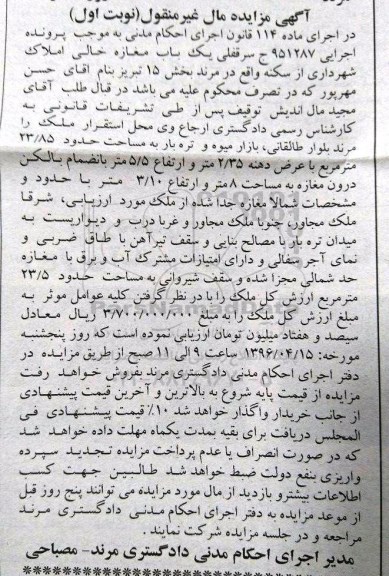 آگهی مزایده مال غیرمنقول(نوبت اول)
در اجرای ماده ۱۱۴ قانون اجرای احکام مدنی به موجب پرونده
اجرایی ۹۵۱۲۸۷ ج سرقفلی یک باب مغازه خالی املاک
شهرداری از سکنه واقع در مرند بخش ۱۵ تبریز بنام اقای حسن
مهرپور که در تصرف محکوم علیه می باشد در قبال طلب آقای
مجید مال اندیش توقیف پس از طی تشریفات قانونی به
کارشناس رسمی دادگستری ارجاع وی محل استقرار ملک را
مرند بلوار طالقانی، بازار میوه و تره بار به مساحت حدود ۲۳/۸۵
مترمربع با عرض دهنه ۲/۳۵ متر و ارتفاع ۵/۵ متر بانضمام بالکن
درون مغازه به مساحت ۸ متر و ارتفاع ۳/۱۰ متر با حدود و
مشخصات شمالاً مغازه جدا شده از ملک مورد ارزیابی، شرقا
ملک مجاور، جنوبا ملک مجاور و غربا درب و دیواریست به
میدان تره بار با مصالح بنایی و سقف تیرآهن با طاق ضربی و
نمای آجر سفالی و دارای امتیازات مشترک آب و برق با مغازه
حد شمالی مجزا شده و سقف شیروانی به مساحت حدود ۲۳/۵
مترمربع ارزش کل ملک را با در نظر گرفتن کلیه عوامل موثر به
مبلغ ارزش کل ملک را به مبلغ ۳/۷۰۰/۰۰۰/۰۰۰ ریال معادل
سیصد و هفتاد میلیون تومان ارزیابی نموده است که روز پنجشنبه
مورخه: ۱۳۹۶/۰۴/۱۵ ساعت ۹ الی ۱۱ صبح از طریق مزایده در
دفتر اجرای احکام مدنی دادگستری مرند بفروش خواهد رفت
مزایده از قیمت پایه شروع به بالاترین و آخرین قیمت پیشنهادی
از جانب خریدار واگذار خواهد شد ۱۰٪ قیمت پیشنهادی فی
المجلس دریافت برای بقیه بمدت یکماه مهلت داده خواهد شد
که در صورت انصراف یا عدم پرداخت مزایده تجدید سپرده
واریزی بنفع دولت ضبط خواهد شد طالبین جهت کسب
اطلاعات بیشتر و بازدید از مال مورد مزایده می توانند پنج روز قبل
از موعد مزایده به دفتر اجرای احکام مدنی دادگستری مرند
مراجعه و در جلسه مزایده شرکت نمایند.
مدیر اجرای احکام مدنی دادگستری مرند- مصباحی